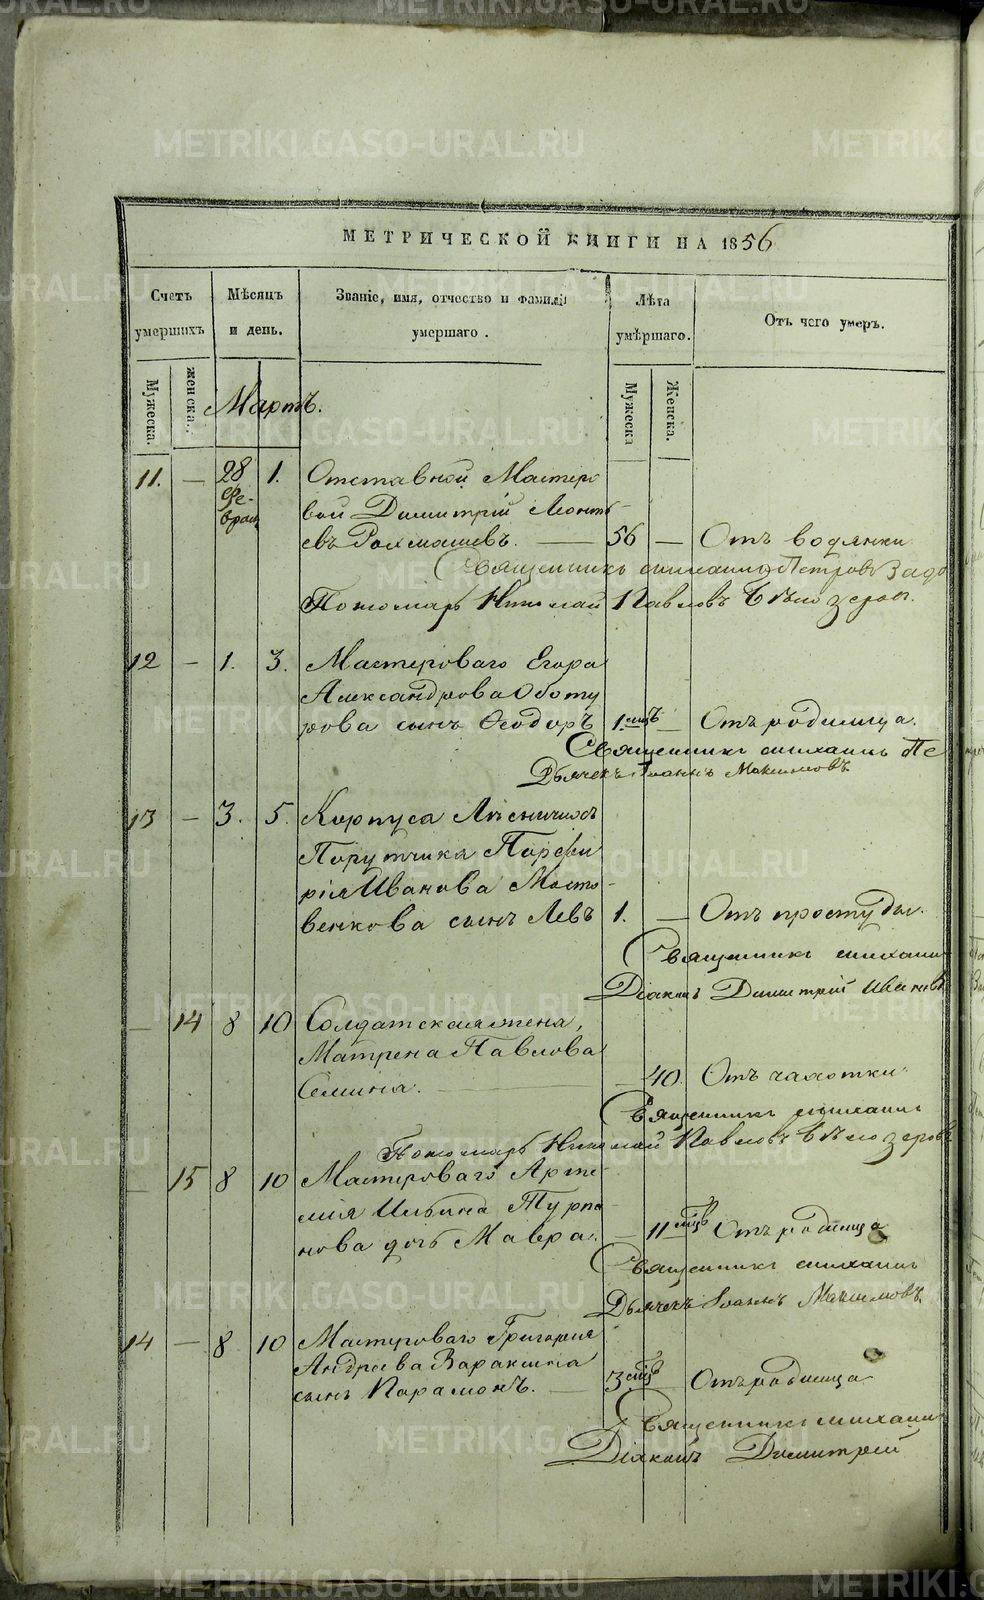 METRIKI.GASO-URAL.RU
МЕТРИЧЕСКОЙ КНИГИ НА 1856
Счетъ умершихъ
Мѣсяцъ и день.
Званіе, имя, отчество и фамилія умершаго.
Лѣта умѣршаго.
Отъ чего умеръ.
Мужеска.
женска.
Мужеска
Женска.
Мартъ.
11. — 28 Февраля 1. Отставной Мастеро
вой Димитрій Леонть
евъ Рохмашевъ. — 56 — Отъ водянки
Священникъ Михаилъ Петровъ
Пономарь Николай Павловъ Бѣлозеровъ.
12 — 1. 3. Мастероваго Егора
Александрова Оботу
рова сынъ Ѳеодоръ 1. мцъ — Отъ родимца.
Священникъ Михаилъ Пе
Дьячекъ Іоаннъ Максимовъ
13 — 3. 5. Корпуса Лѣсничихъ
Порутчика Порфи
рія Иванова Мосто
венкова сынъ Левъ 1. — Отъ простуды.
Священникъ Михаил
Діаконъ Димитрій Ивановъ
— 14 8 10 Солдатская жена,
Матрена Павлова
Семина. — 40. Отъ чахотки
Священникъ Михаилъ
Пономарь Николай Павловъ Бѣлозеровъ
— 15 8 10 Мастероваго Арте
мія Ильина Турпа
нова дочь Мавра. — 11 мцъ Отъ родимца
Священникъ Михаилъ
Дьячекъ Іоаннъ Максимовъ
14 — 8 10 Мастероваго Григорія
Андреева Вараксина
сынъ Парамонъ. — 3 мцъ — Отъ родимца
Священникъ Михаил
Діаконъ Димитрій